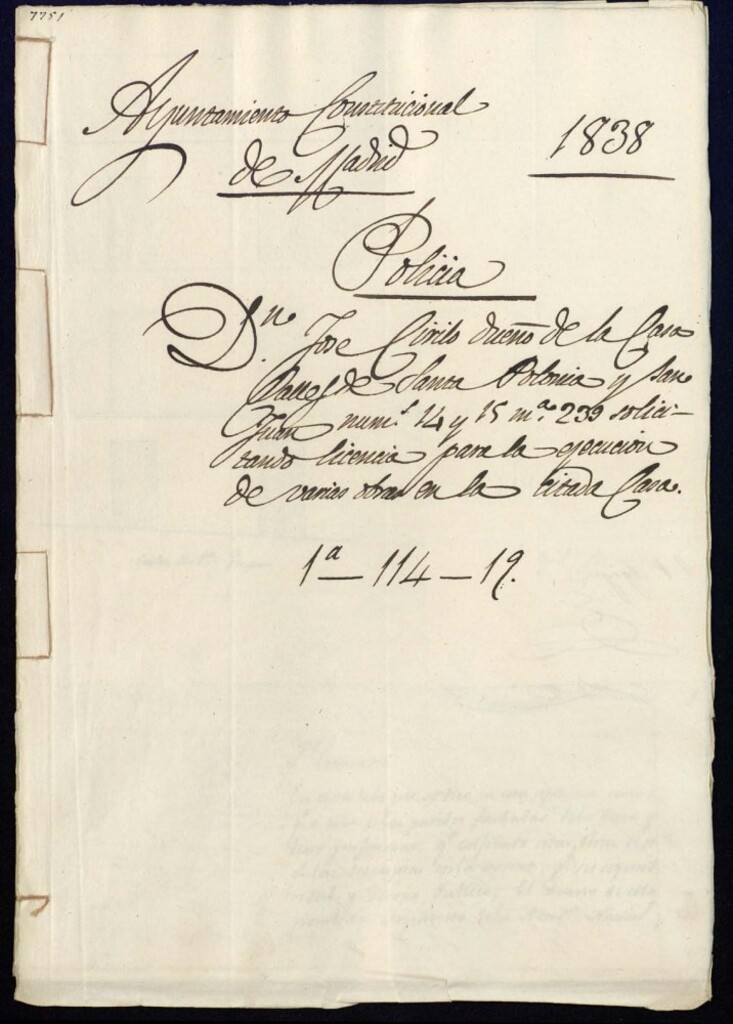 7751
Ayuntamiento Constitucional
de Madrid
1838
Policia
Dn. Jose Cirilo dueño de la Casa
Calles de Santa Polonia y San
Juan num.s 14 y 15 m.a 239 solici-
tando licencia para la ejecucion
de varias obras en la citada Casa.
1a — 114 — 19.